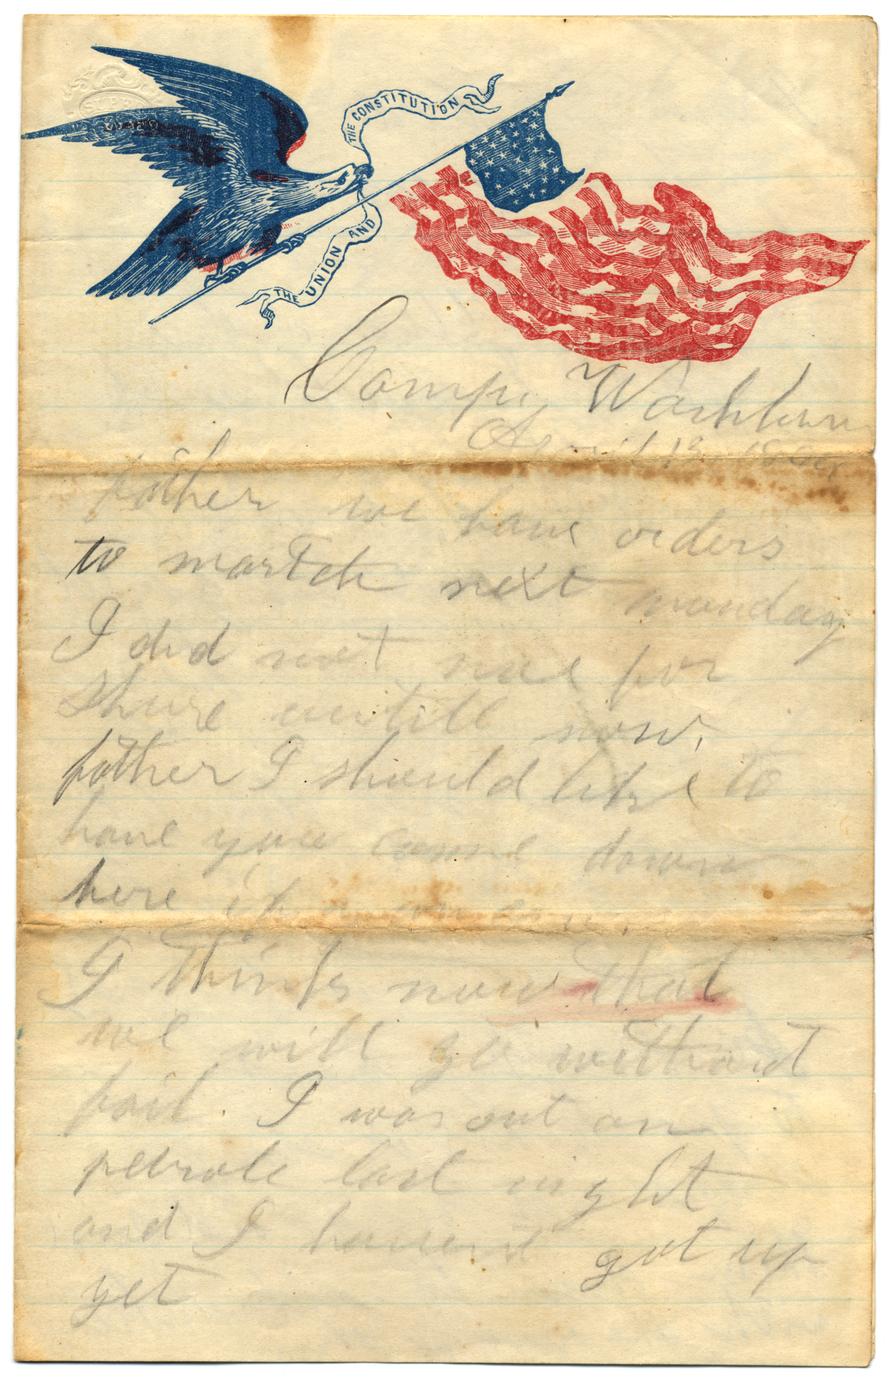 THE CONSTITUTION
THE UNION AND
Camp Washburn
April 13
father we have orders
to martch next monday
I did not noe for
shure untill now.
father I should like to
have you come down
here if
I think now that
we will go without
fail. I was out on
petrole last night
and I havent got up
yet